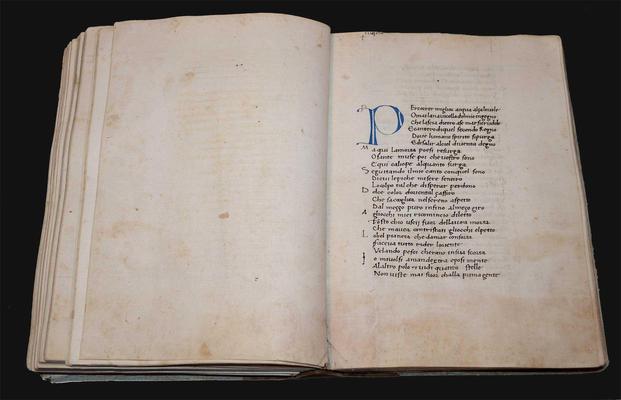 PErcorrer miglior acqua alzalevele
Omai lanavicella delmio ingegno
Che lascia dietro ase mar sicrudele
E cantero diquel secondo Regno
Dove humano spirito sipurga
Edisalir alciel diventa degno
Ma qui Lamorta poesi resurga
O sante muse poi che vostro sono
E qui caliope alquanto surga
Seguitando ilmio canto conquel sono
Dicui lepiche misere sentiro
Locolpo tal che disperar perdono
Dolce color doriental zaffiro
Che saccoglieva nelsereno aspetto
Dal mezzo puro infino alprimo giro
Agliocchi miei ricomincio diletto
Tosto chio uscii fuor dellaura morta
Che mavea contristati gliocchi elpetto
Lobel pianeta che damar conforta
Faceva tutto rider loriente
Velando pesci cherano insua scorta
Io mivolsi amandextra eposi mente
Alaltro polo e vidi quattro stelle
Non viste mai fuor challa prima gente